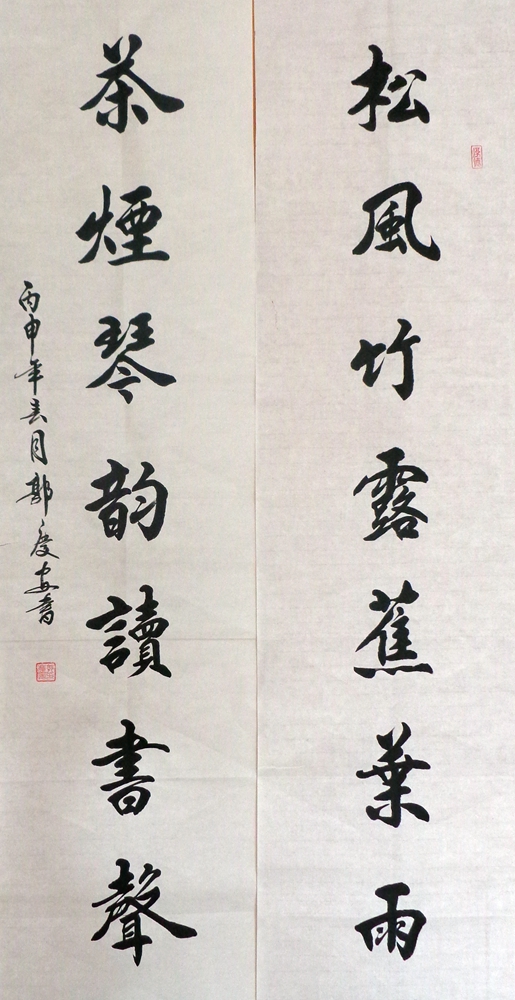 松風竹露蕉葉雨
茶煙琴韵讀書聲
丙申年春月郭慶安書